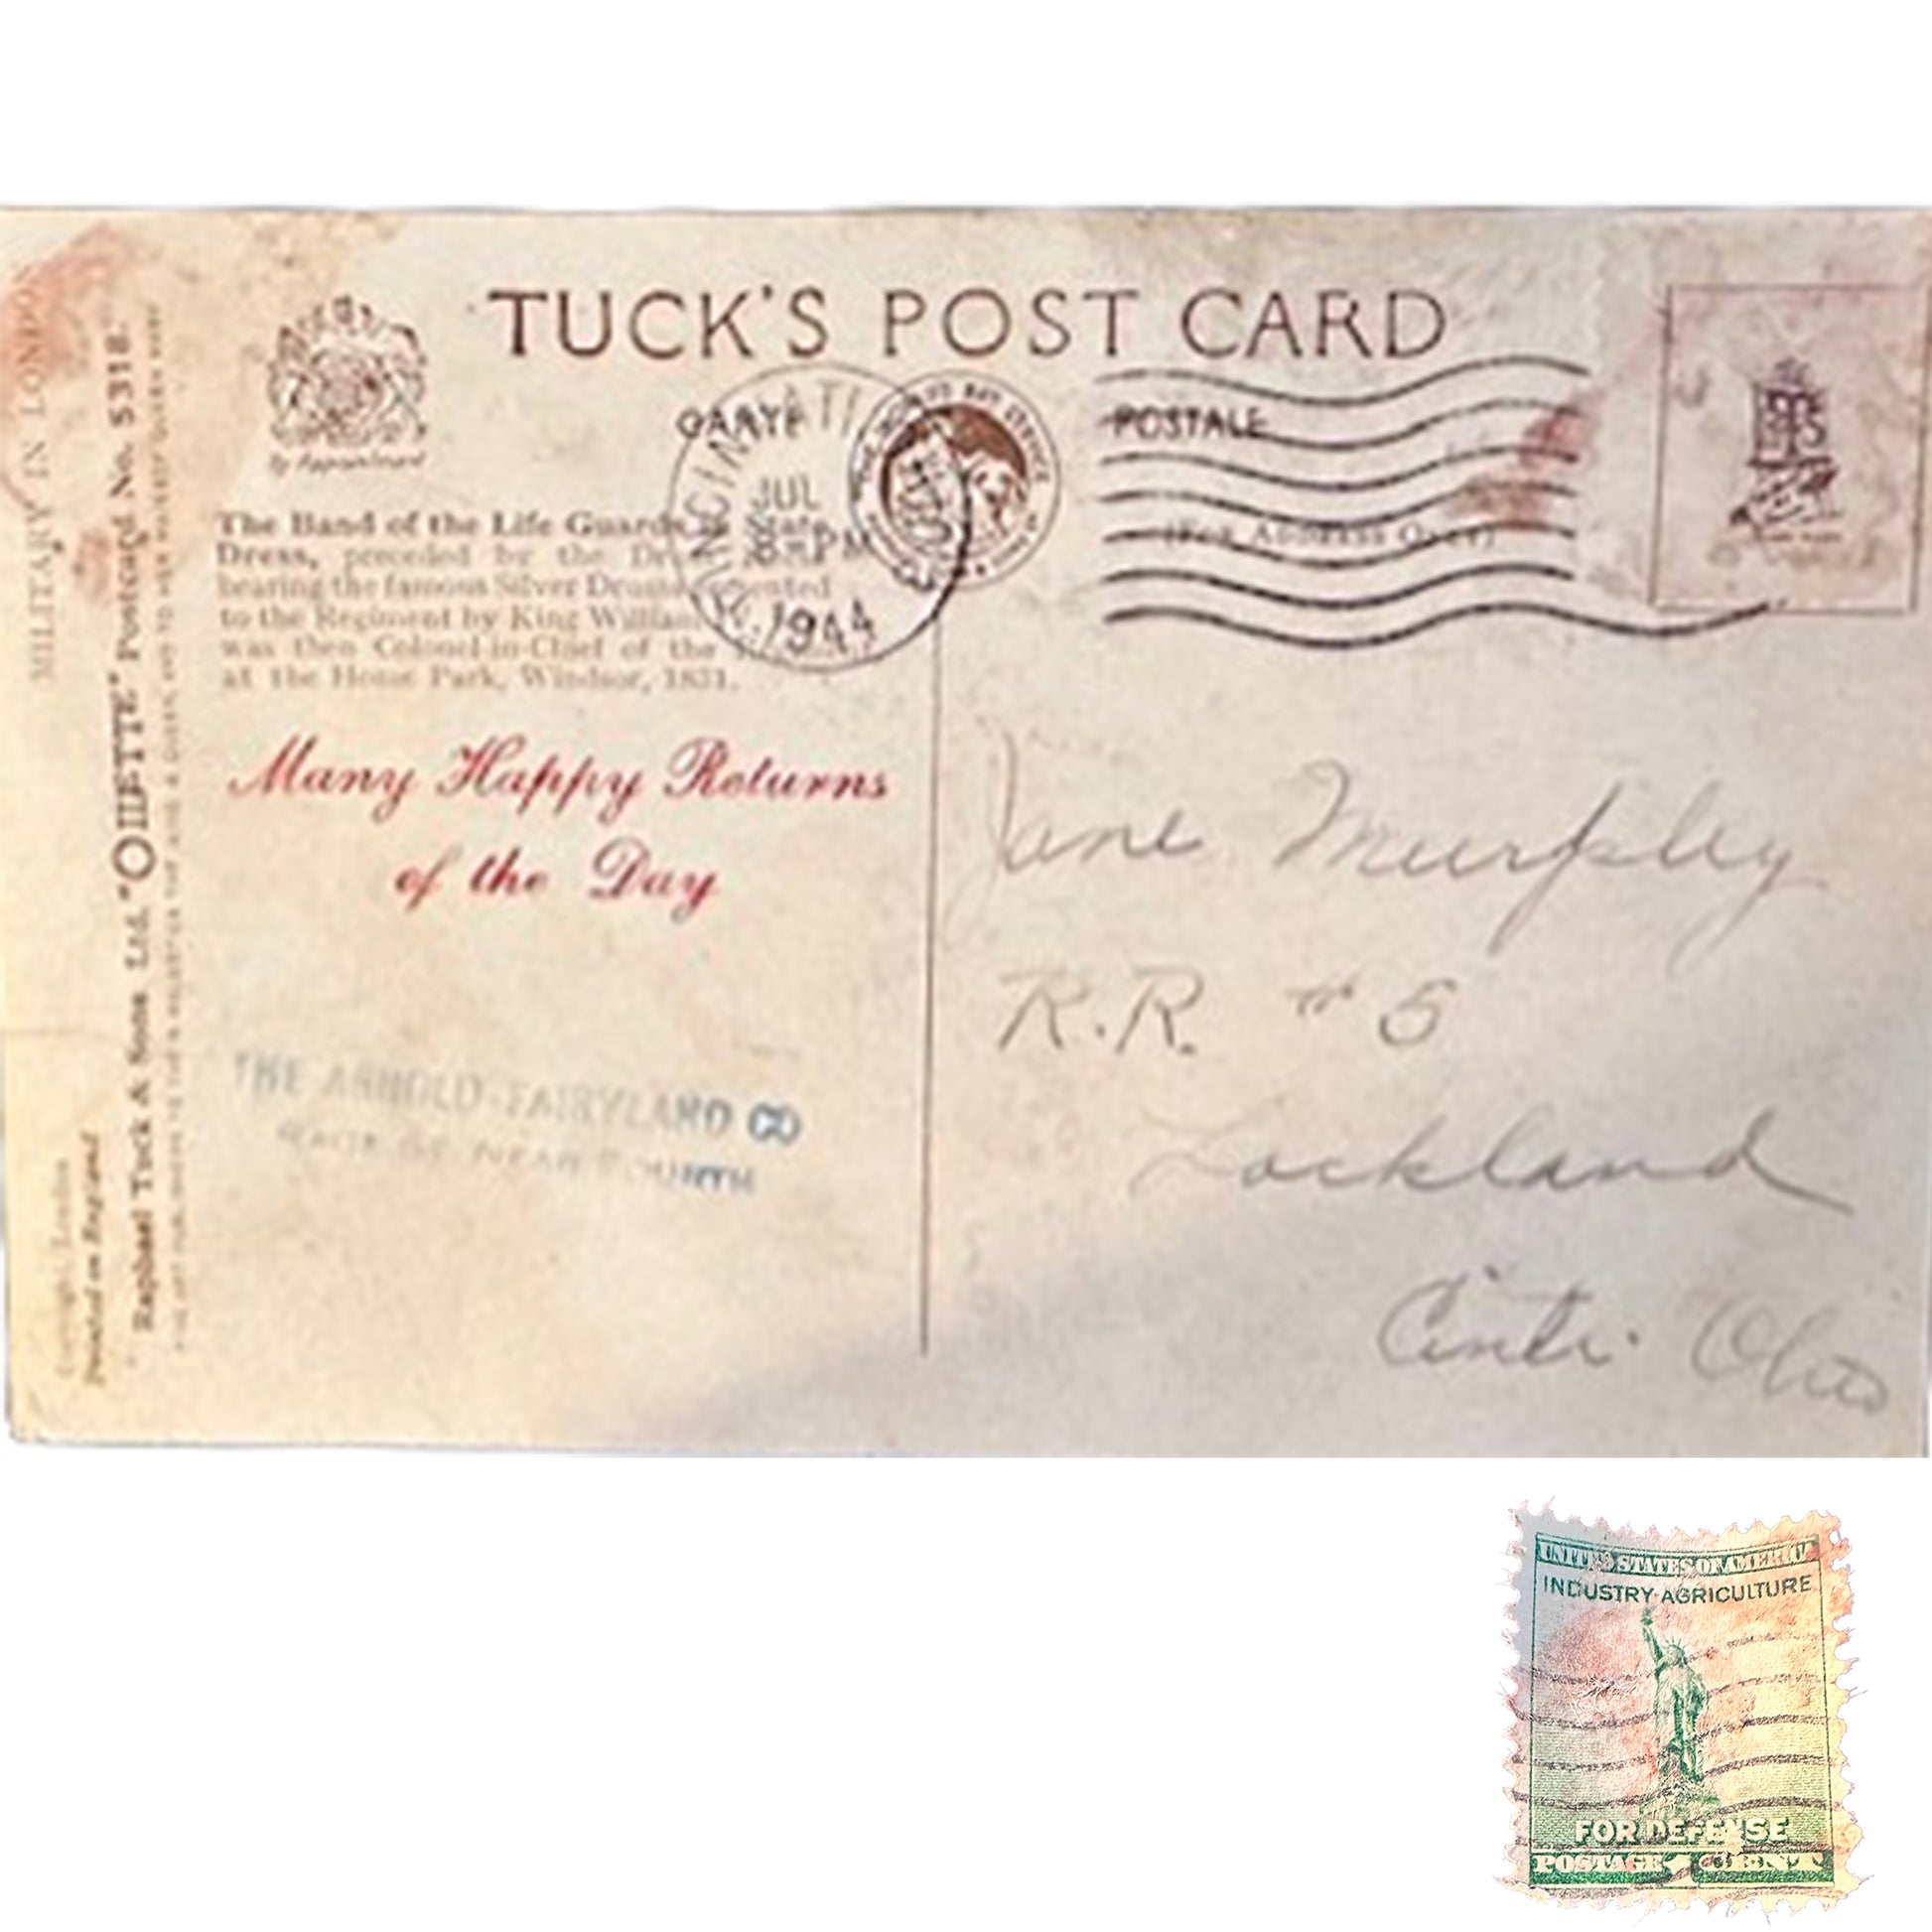 TUCK'S POST CARD
By Appointment
CARTE POSTALE
(FOR ADDRESS ONLY)
CINCINNATI
JUL
PM
1944
OHIO
The Band of the Life Guards
Dress, preceded by the
bearing the famous Silver Drums
to the Regiment by King William
was then Colonel-in-Chief of the
at the Home Park, Windsor, 1831.
Many Happy Returns
of the Day
THE ARNOLD-FAIRYLAND CO
RACE ST NEAR FOURTH
MILITARY IN LONDON
Raphael Tuck & Sons Ltd. "OILETTE" Postcard No. 5318.
Copyright London
Printed in England
Jane Murphy
R.R. # 5
Lockland
Cinti. Ohio
UNITED STATES OF AMERICA
INDUSTRY·AGRICULTURE
FOR DEFENSE
POSTAGE 1 CENT